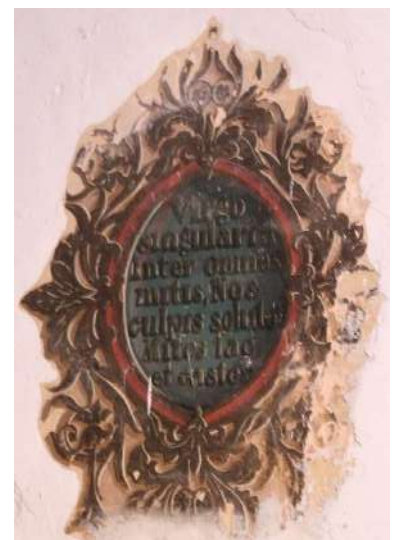 Virgo
singularis
inter omnes
mitis, Nos
culpis solutos
Mites fac
et castos